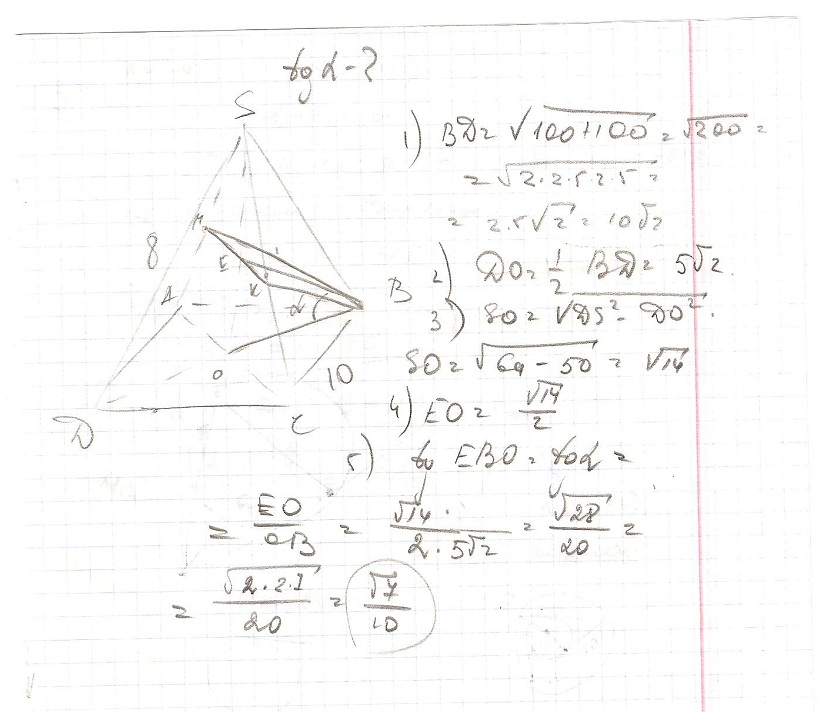 tg α - ?
S
8
M
E
K
A
B
α
O
10
D
C
1) BD = √100+100 = √200 =
= √2·2·5·2·5 =
= 2·5√2 = 10√2
2) DO = 1/2 BD = 5√2.
3) SO = √DS² - DO².
SO = √64 - 50 = √14
4) EO = √14/2
5) tg EBO = tg α =
= EO/OB = √14·/2·5√2 = √28/20 =
= √2·2·7/20 = √7/10